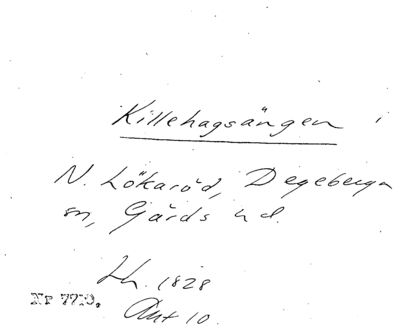 Killehagsängen i
N. Lökaröd, Degeberga
sn, Gärds hd.
Lh. 1828
Nr 7710. Akt 10.